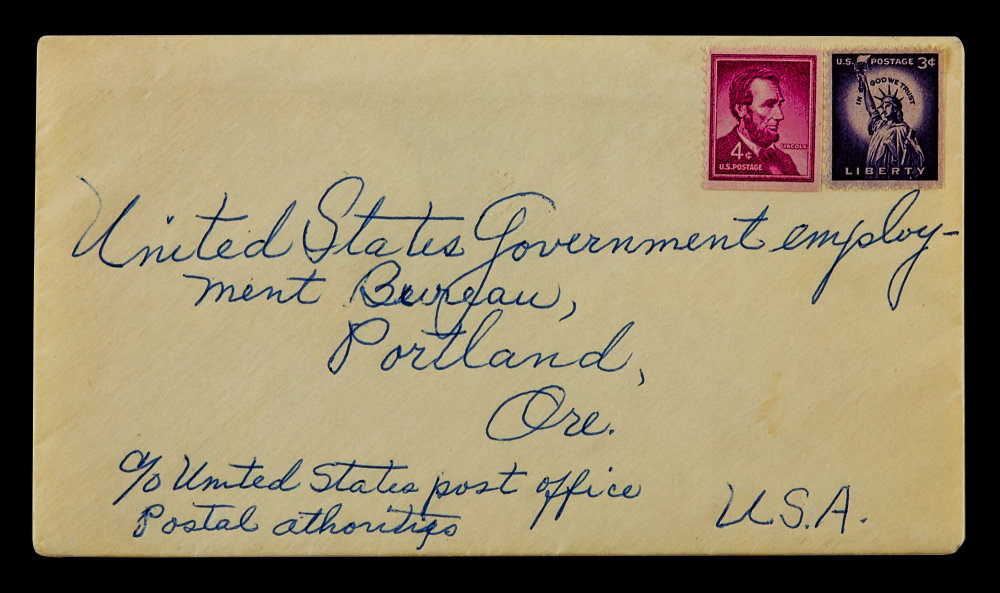 4¢
LINCOLN
U.S. POSTAGE
U.S. POSTAGE 3¢
IN GOD WE TRUST
LIBERTY
United States Government employ-
ment Bureau,
Portland,
Ore.
c/o United States post office
Postal athorities
U.S.A.